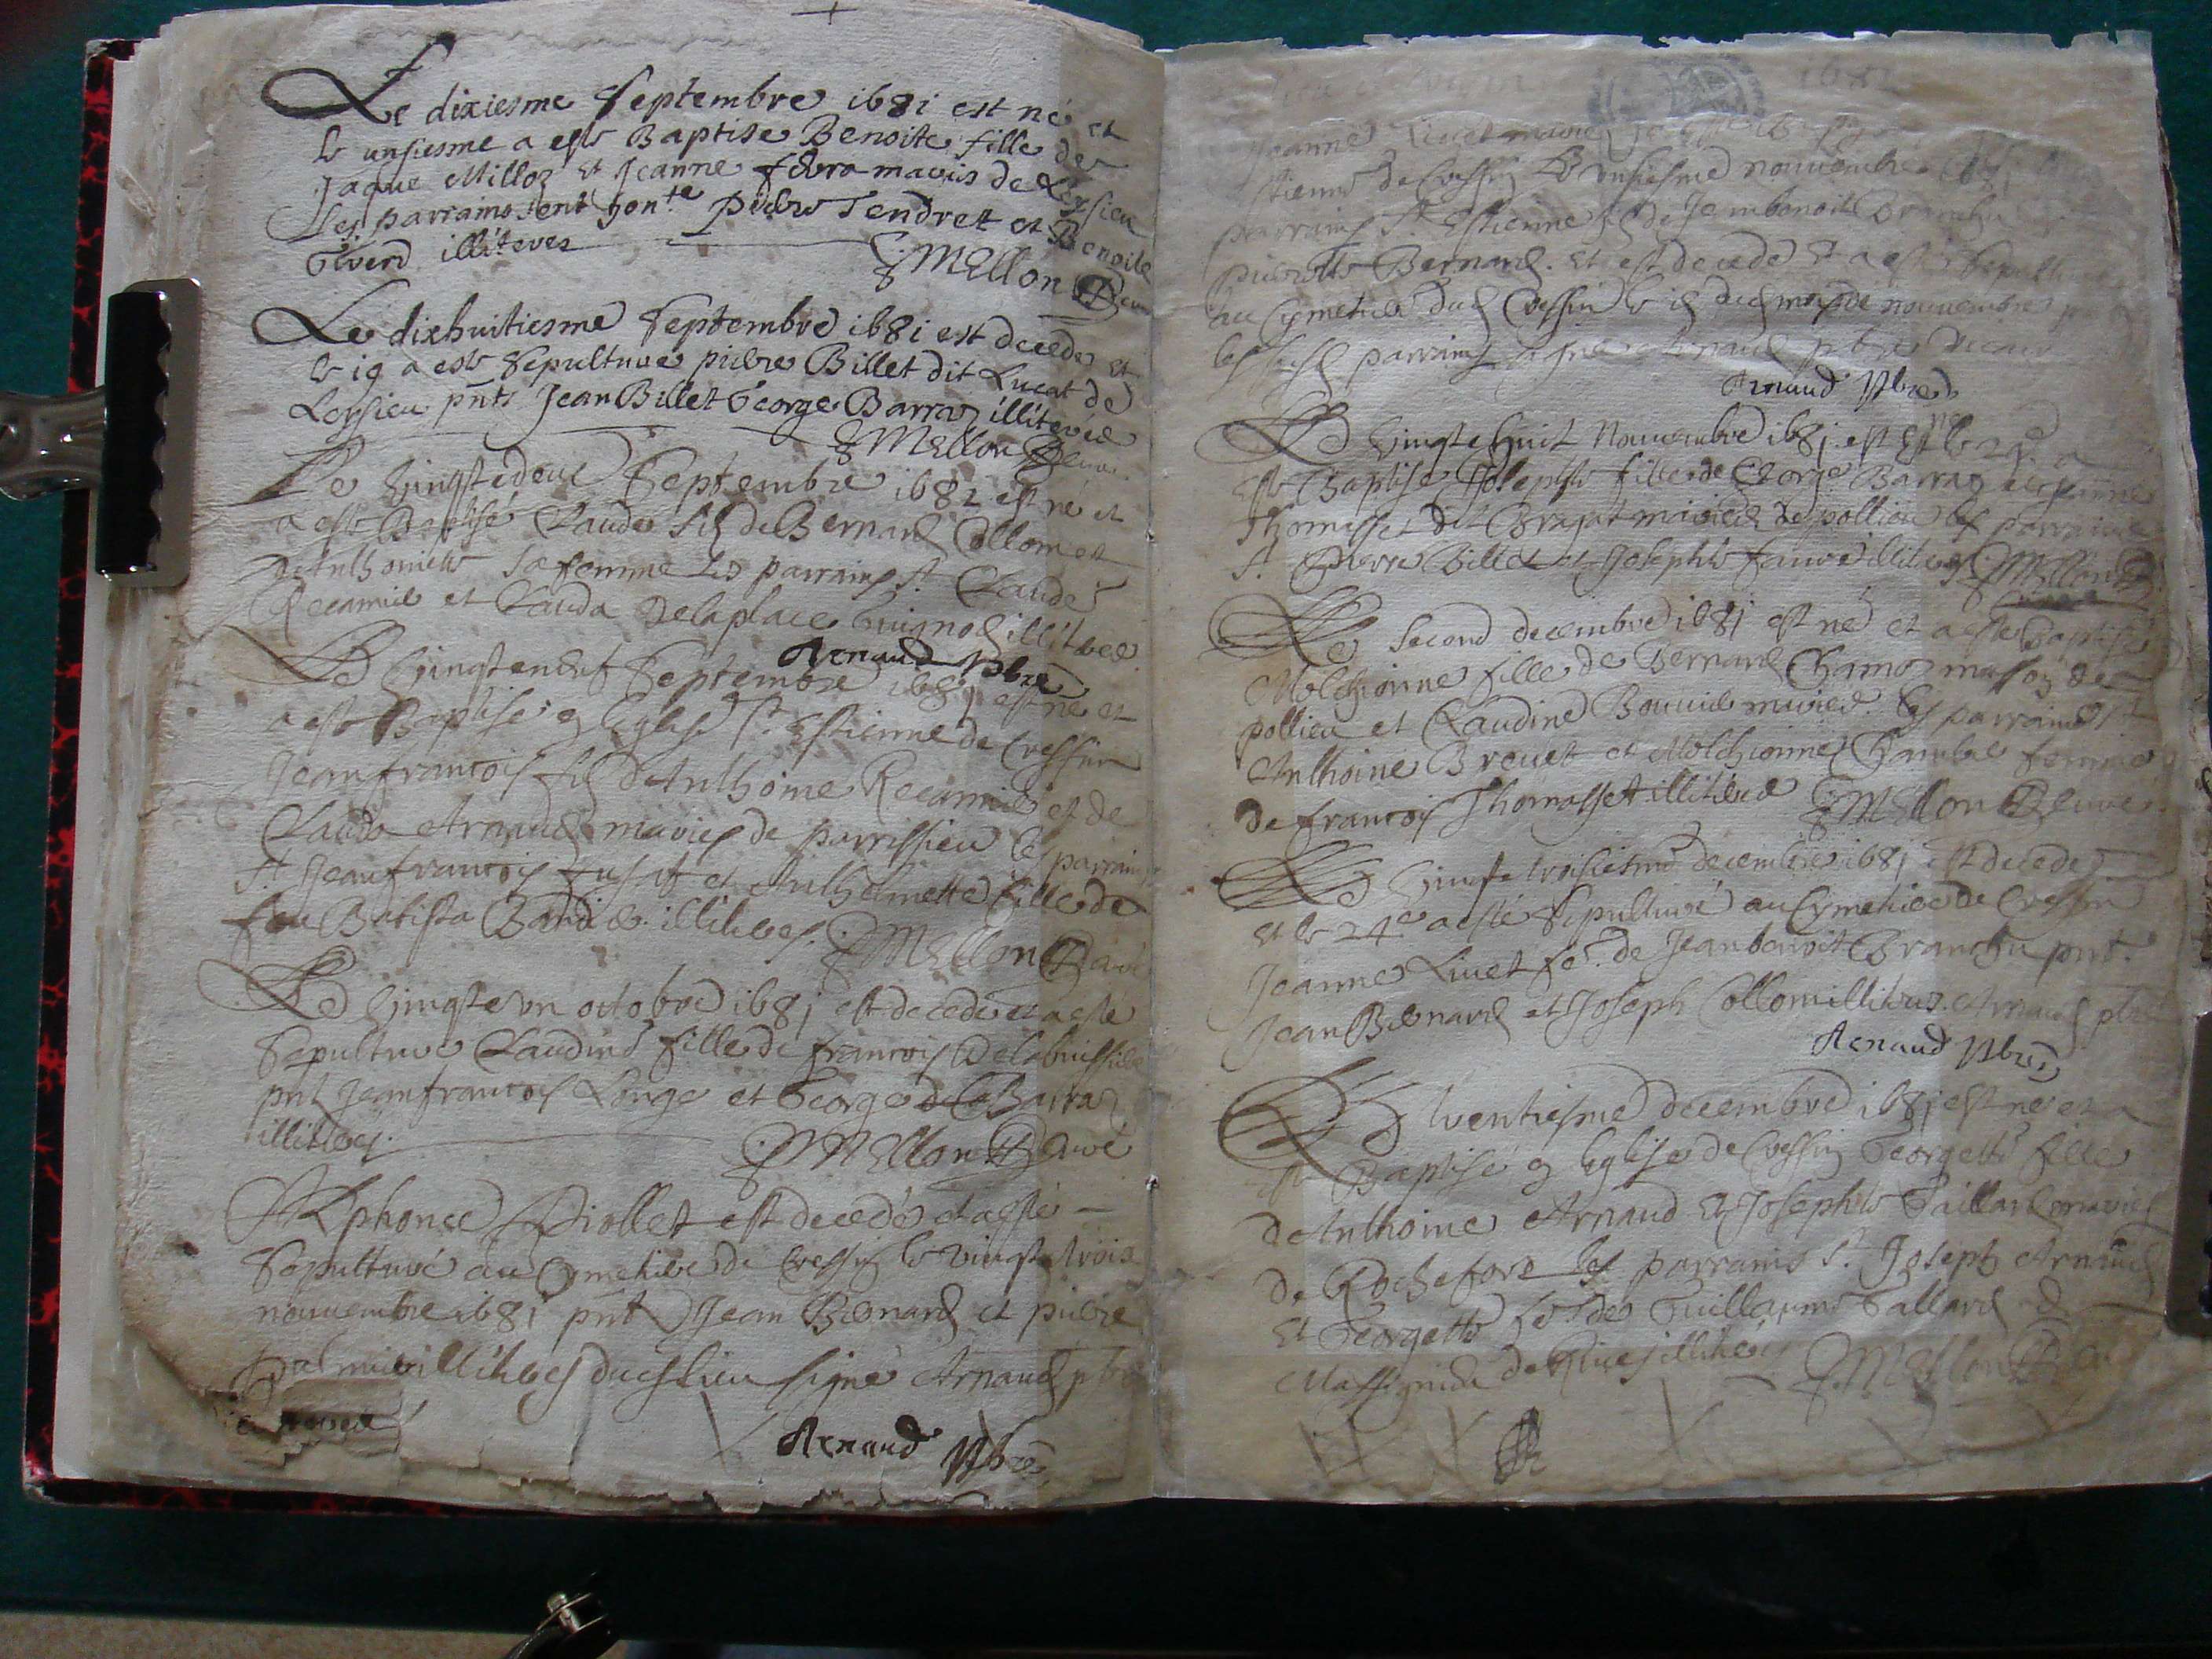 Le dixiesme Septembre 1681 est né et
le unsiesme a esté Baptise Benoite fille de
Jaque Milloz et Jeanne mariés de Leysieu
Les parrains sont hon.te pierre Tendrett et Benoite
illiteres
Mellon Cure
Le dixhuitiesme Septembre 1681 est decede et
le 19 a esté Sepulture pierre Billet dit Lucat de
Leysieu pñts Jean Billet George Barraz illiteres
Mellon Cure
Le Vingtedeux Septembre 1682 est né et
a este Baptisé Claude fils de Bernard Collomet
d'Anthoinette sa femme Les parrains st Claude
Recamier et Clauda Delaplace Guignod illiteres
Arnaud pbre
Le Vingteneuf Septembre 1681 est né et
a esté Baptisé en Eglise St Estienne de Cressin
Jeanfrancois fils d'Anthoine Recamier et de
Clauda Arnaud mariés de parrissieu les parrains
st Jeanfrancois et Anthelmette fille de
feu Batista illiteres. Mellon Curé
Le Vingte un octobre 1681 est decede et a esté
Sepulture Claudine fille de francois Delabuissiere
pñt Jeanfrancois Longe et George Barraz
illiteres.
Mellon Curé
Alphonce Piollet est decedé et a esté
Sepulturé au Cymetiere de Cressin le vingte trois
nouvembre 1681 pñt Jean Bernard et pierre
illiteres dud lieu signé Arnaud pbre
Arnaud pbre
1682
Jeanne Livet mariés
Estienne de Cressin Le unsiesme nouvembre
parrains St Estienne de Jembenoit Branchu
Bernard. Et est decede Et a esté Sepulture
au Cymetiere dud Cressin le dud mois de nouvembre
les susd parrains Arnaud pbre
Arnaud pbre
Le Vingte huit Nouvembre 1681 est né le 29 a
Esté Baptise Josephte fille de George Barraz et Jeanne
Thomasset dit Brajat mariés de pollieu les parrains
st Pierre Billet et Josephte illiteres Mellon
Le second decembre 1681 est né et a este Baptise
Melchionne fille de Bernard Chamoz de
pollieu et Claudine Bouvier mariés. Les parrains st
Anthoine Brevet et Melchionne femme
de francois Thomasset illitere Mellon Curé
Le Vingte troisiesme decembre 1681 est decede
Et le 24e a esté Sepulturé au Cymetiere de Cressin
Jeanne Livet fe de Jeanbenoit Branchu pñt.
Jean Bernard et Joseph Collom illiteres. Arnaud pbre
Arnaud pbre
Le trentiesme decembre 1681 est né et a
esté Baptisé en Eglise de Cressin Georgette fille
d'Anthoine Arnaud Et Josephte Taillard mariés
de Rochefort les parrains St Joseph Arnaud
Et Georgette fe de Guillaume Tallard de
Massignieu de Rives illiteres Mellon